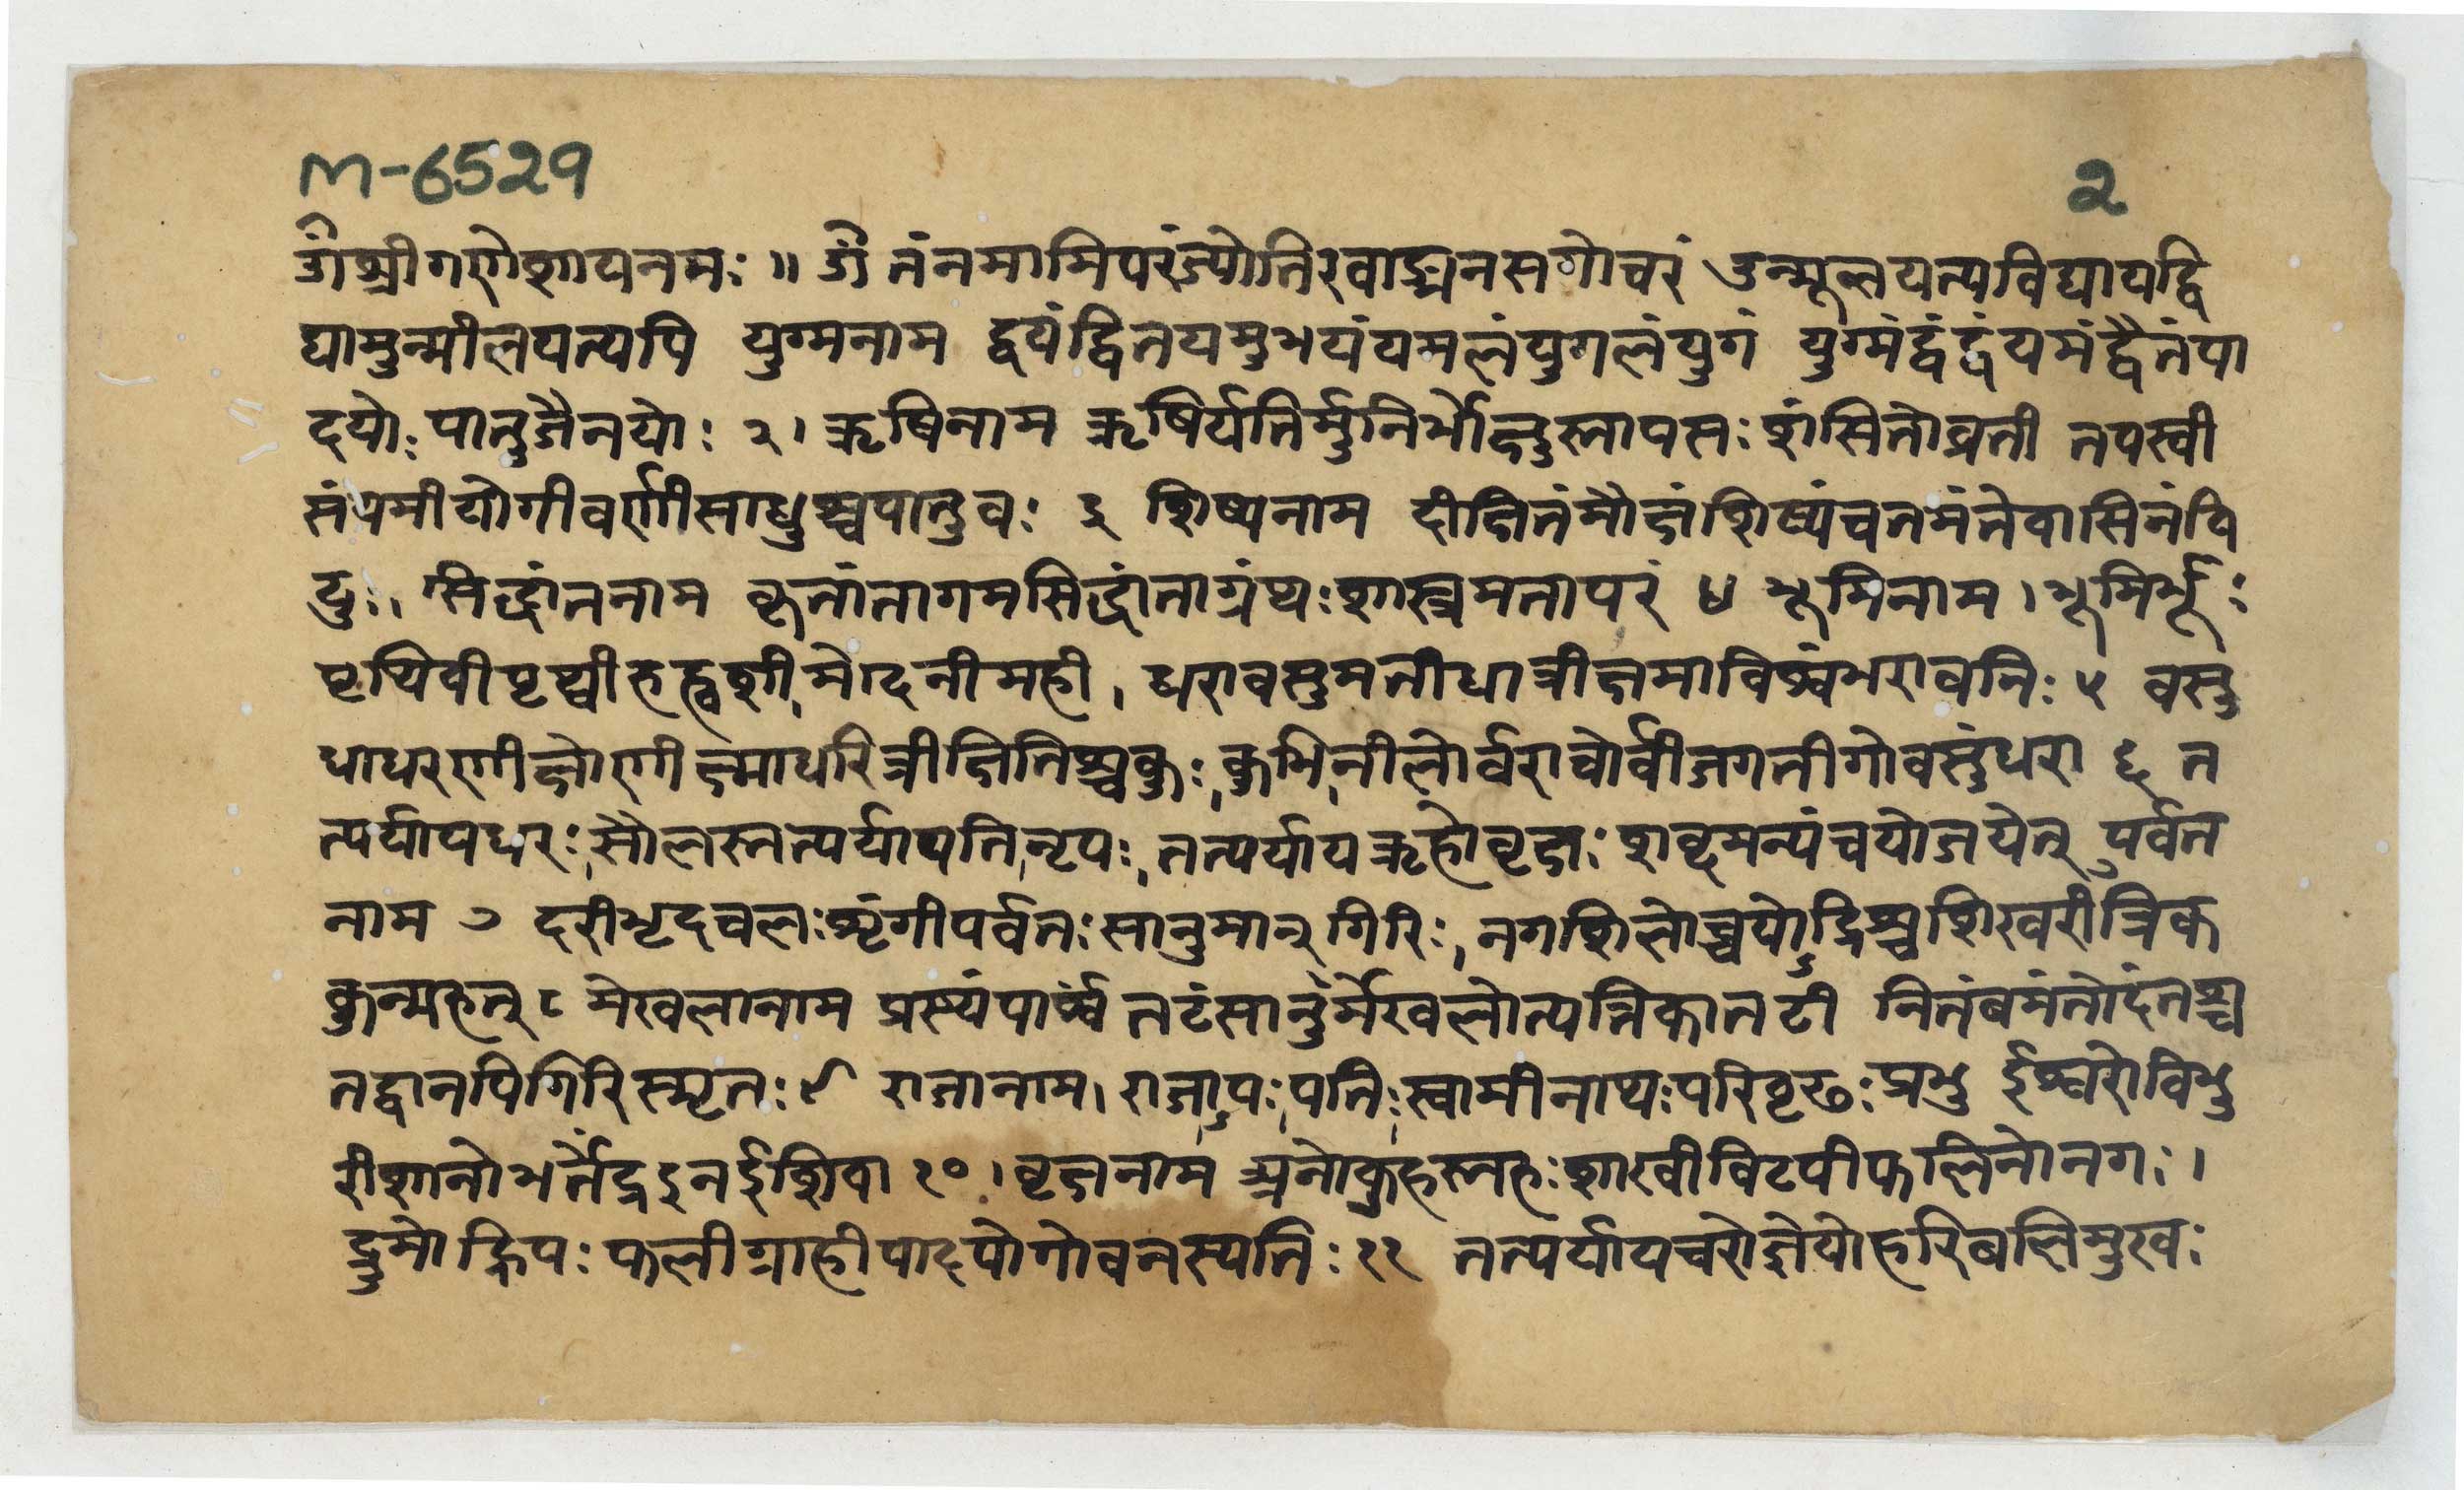 M-6529
2
ॐ श्रीगणेशायनमः ॥ ॐ तंनमामिपरंज्योतिरवाङ्मनसगोचरं उन्मूलयत्यविद्यायद्वि
द्यामुन्मीलयत्यपि युग्मनाम द्वयंद्वितयमुभयंयमलंयुगलंयुगं युग्मंद्वंद्वंयमंद्वैतंपा
दयोः पातुजैनयोः २। ऋषिनाम ऋषिर्यतिर्मुनिर्भिक्षुस्तापसः शंसितोव्रती तपस्वी
संयमीयोगीवर्णीसाधुश्चपातुवः ३ शिष्यनाम दीक्षितंमौक्षंशिष्यंचतमंतेवासिनंवि
दुः। सिद्धांतनाम कृतांतागमसिद्धांताग्रंथः शास्त्रमतापरं ४ भूमिनाम । भूमिर्भूः
पृथिवीपृथ्वीरुह्वशी, मेदिनीमही। धरावसुमतीधात्रीक्षमाविश्वंभरावनिः ५ वसु
धाधरणीक्षोणीक्ष्माधरित्रीक्षितिश्चकुः, कुभिनीलोर्वराचोर्वीजगतीगोवसुंधरा ६ त
त्पर्यायधरः, सौलस्तत्पर्यायपतिनृपः, तत्पर्यायऋहोवृक्षः शब्दमन्यंचयोजयेत् पर्वत
नाम ७ दरीभृदचलः शृंगीपर्वतः सानुमान् गिरिः, नगशिलोच्चयोद्रिश्चशिखरीत्रिक
कुन्मरुत् ८ मेखलानाम प्रस्थंपार्श्वंतटंसानुर्मेखलोत्पत्रिकातटी नितंबमंतोदंतश्च
तद्वानपिगिरिस्मृतः ९ राजानाम। राजापः पतिः स्वामीनाथः परिवृढः प्रभु ईश्वरोविभु
रीशानोभर्तेंद्रइनईशिवा १०। वृक्षनाम अनोकुहस्तरुः शाखीविटपीफलिनोनगः।
द्रुमोंह्रिपः फलीग्राहीपादपोगोवनस्पतिः ११ तत्पर्यायचरोज्ञेयोहरिबलिमुखः